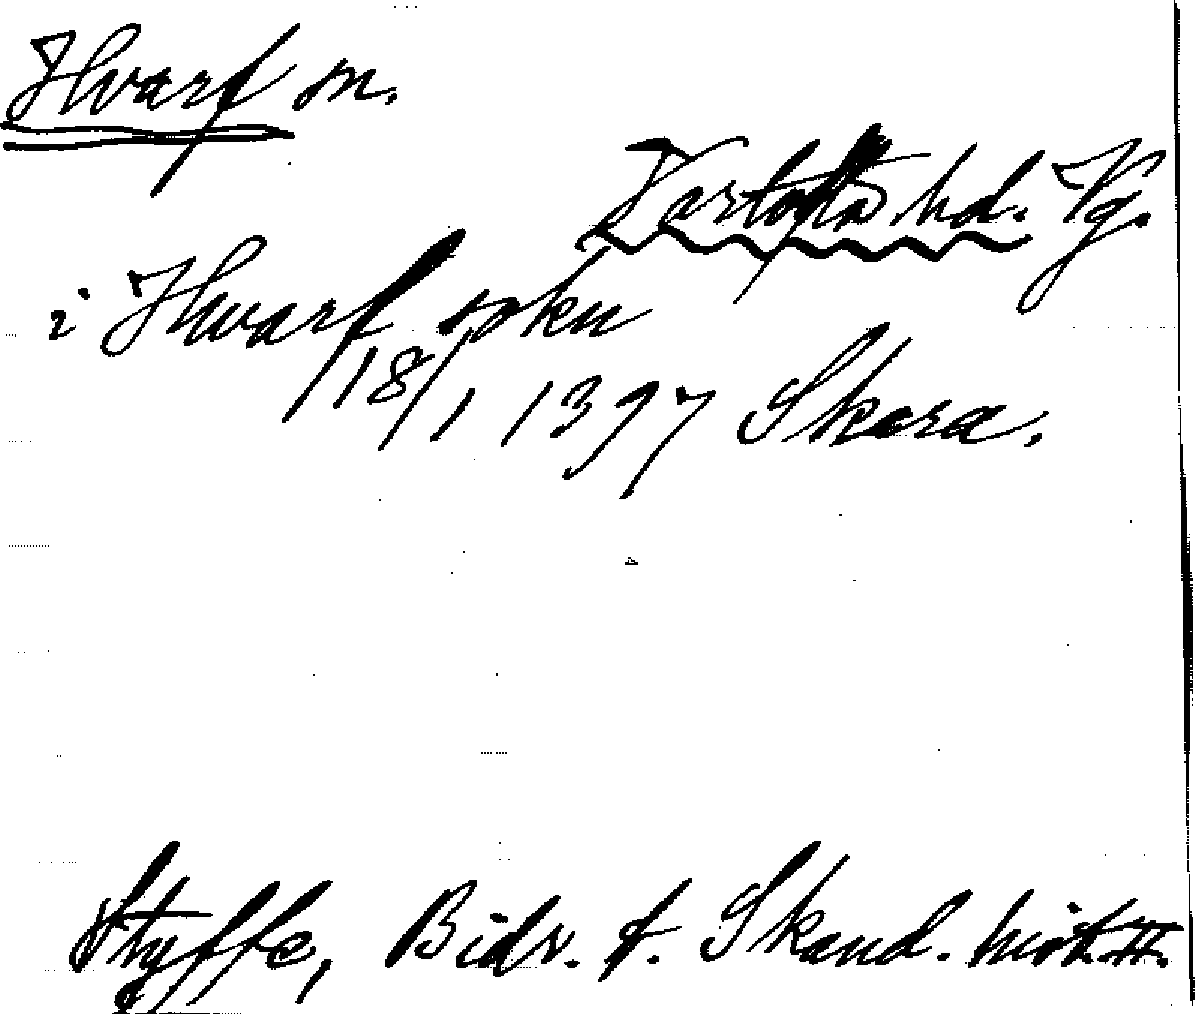 Hvarf sn.
Vartofta hd. Vg.
i Hwarf sokn
18/1 1397 Skara.
Styffe, Bidr. t. Skand. hist. II.